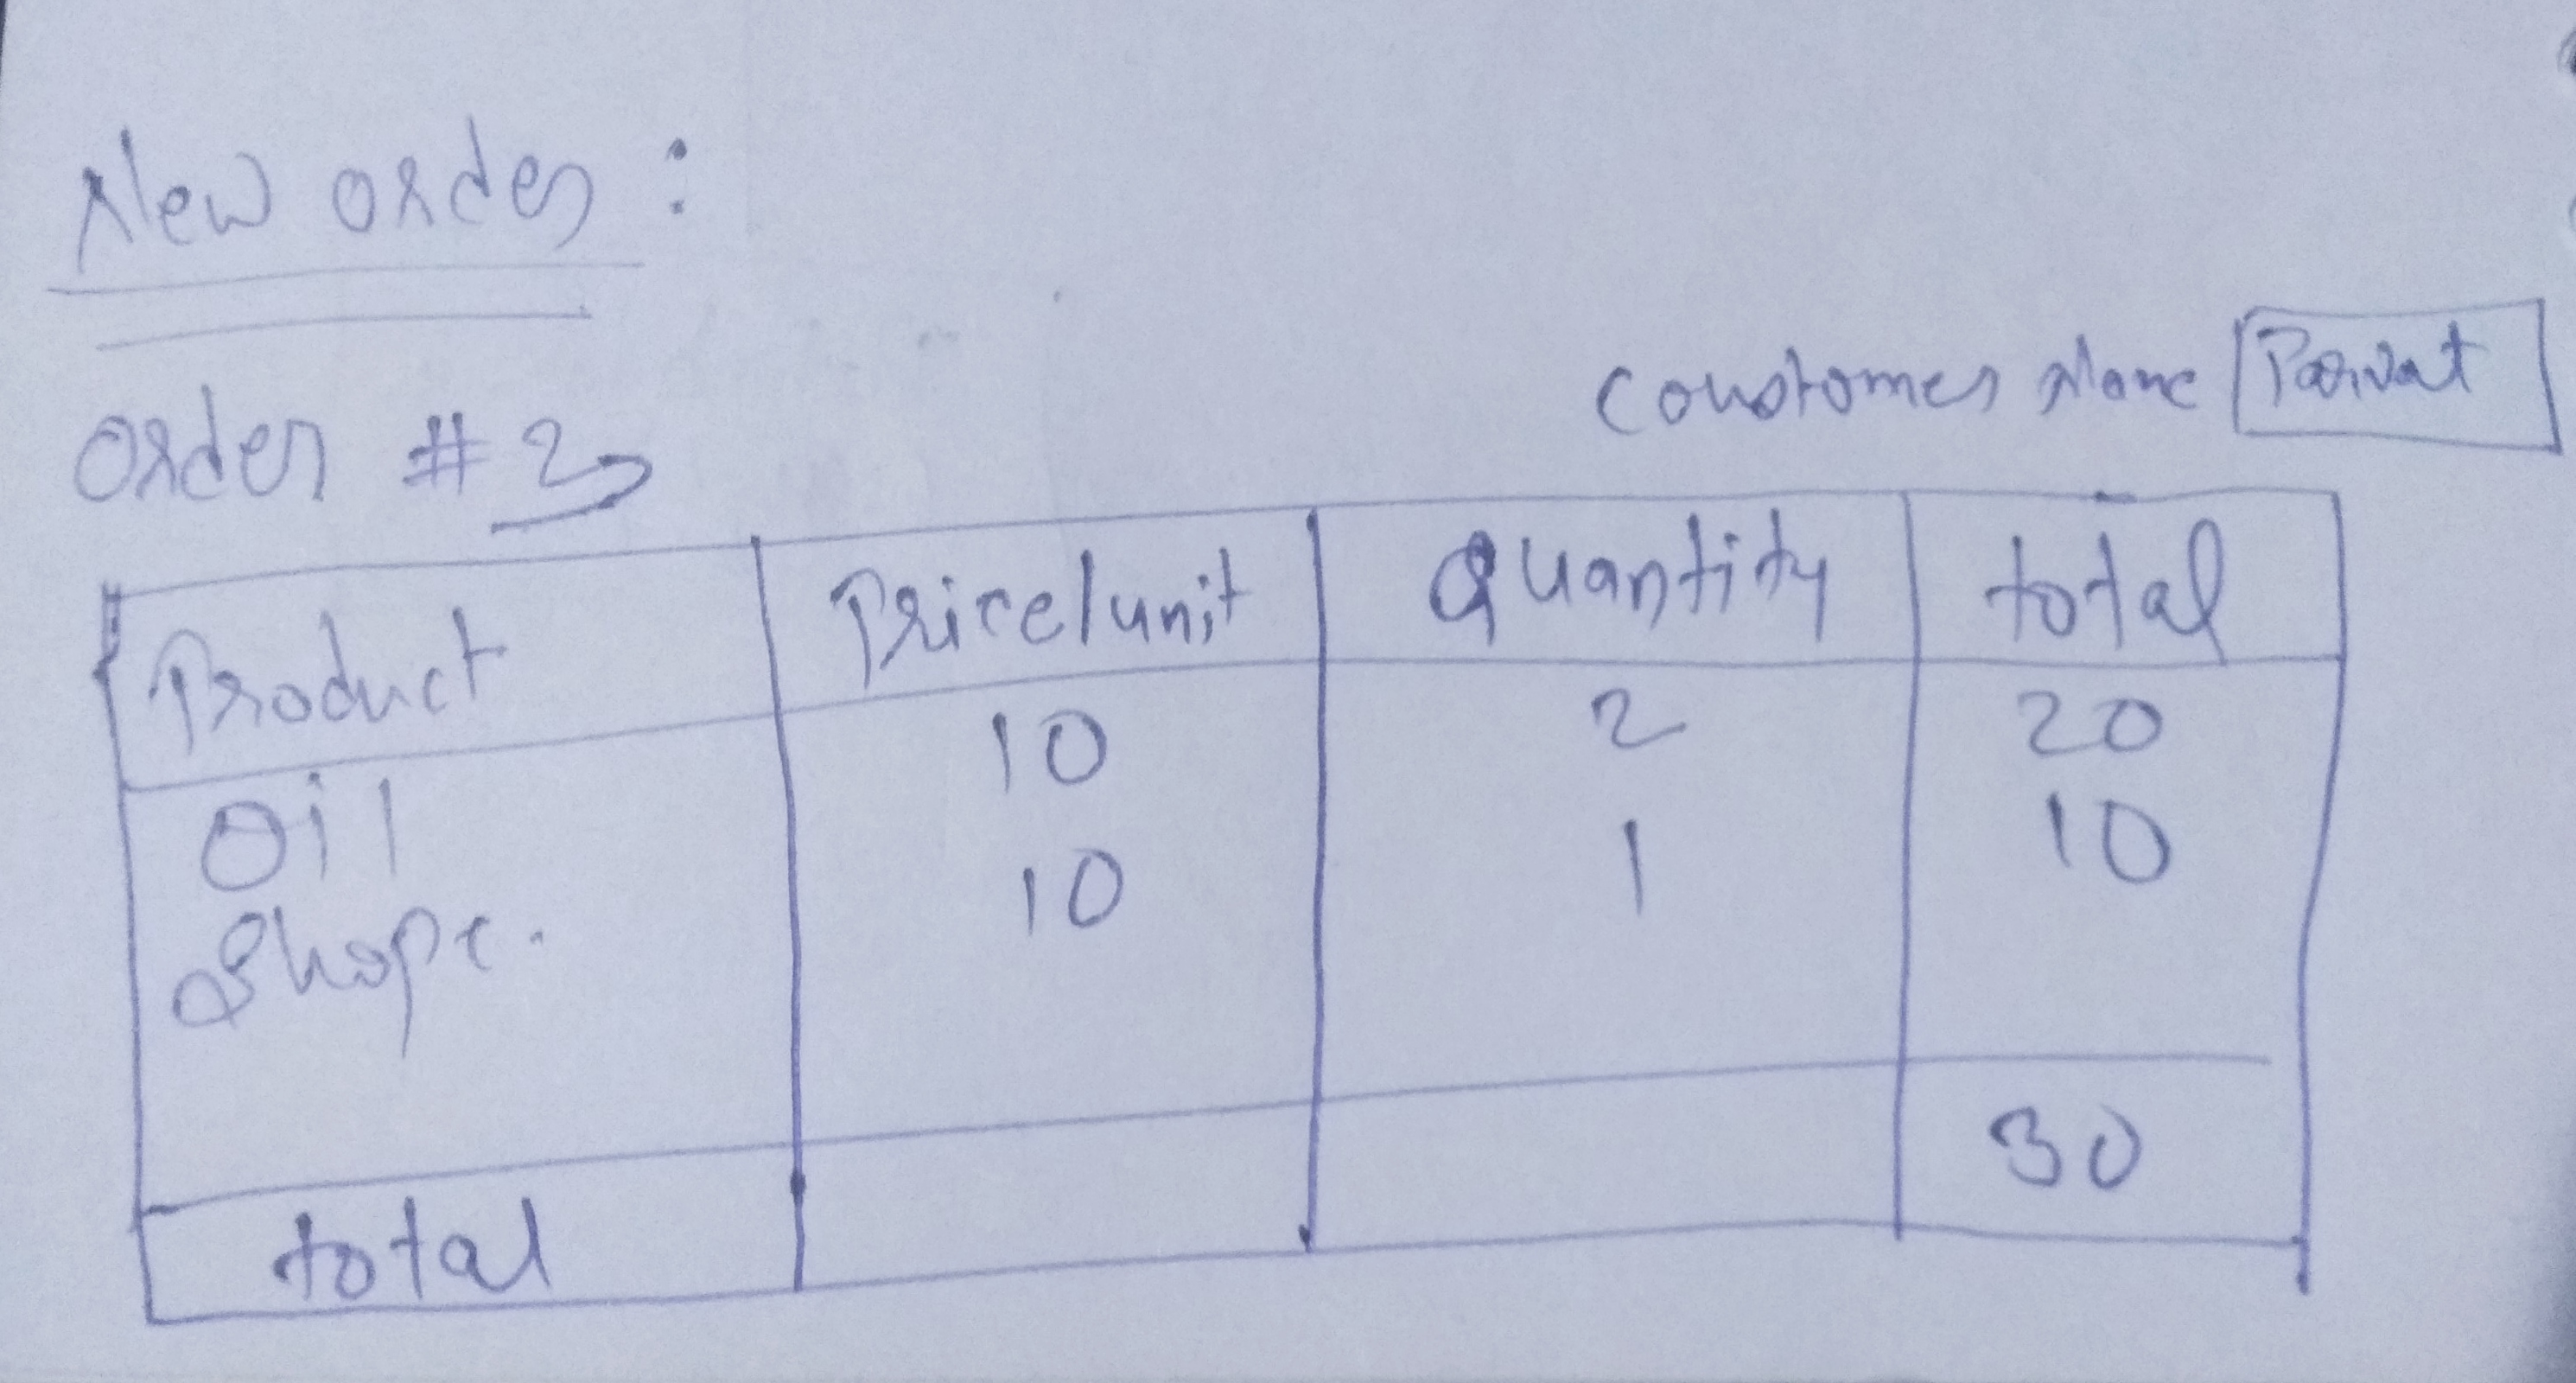 New order :
Coustomer Name
order #
Product Price/unit Quantity total
Oil 10 2 20
Shope. 10 1 10
total 30